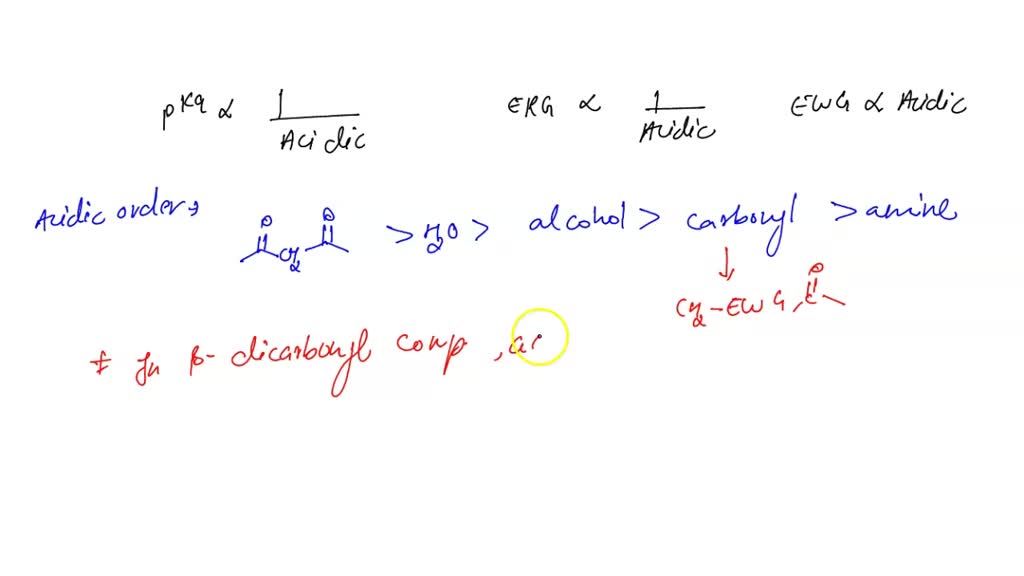 pKa ∝ 1/Acidic ERG ∝ 1/Acidic EWG ∝ Acidic
Acidic order → O CH2 O > H2O > alcohol > carbonyl > amine
CH2-EWG, O C
* In β-dicarbonyl comp, ac